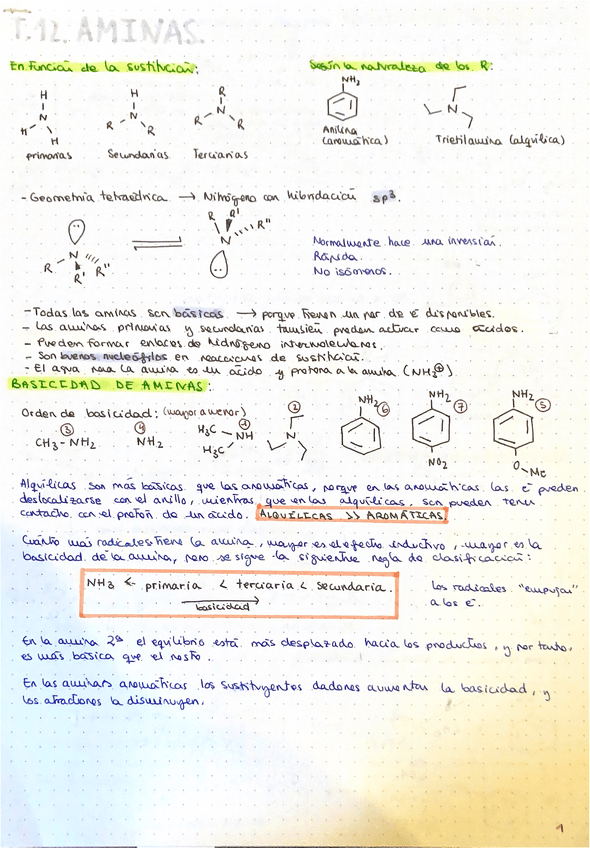 T.12. AMINAS.
En función de la sustitución:
Según la naturaleza de los R:
H
N
H
H
primarias
H
N
R
R
Secundarias
R
N
R
R
Terciarias
NH2
Anilina
(aromática)
N
Trietilamina (alquílica)
- Geometría tetraédrica → Nitrógeno con hibridación sp3.
N
R
R'
R"
R
R'
R"
N
Normalmente hace una inversión.
Rápida.
No isómeros.
- Todas las aminas son básicas → porque tienen un par de e- disponibles.
- Las aminas primarias y secundarias también pueden actuar como ácidos.
- Pueden formar enlaces de hidrógeno intermoleculares.
- Son buenos nucleófilos en reacciones de sustitución.
- El agua para la amina es un ácido y protona a la amina (NH3⊕)
BASICIDAD DE AMINAS:
Orden de basicidad: (mayor a menor)
③
CH3-NH2
④
NH2
①
H3C
NH
H3C
②
N
NH2
⑥
NH2
⑦
NO2
NH2
⑤
O
Me
Alquílicas son más básicas que las aromáticas, porque en las aromáticas las e- pueden
deslocalizarse con el anillo, mientras que en las alquílicas, son pueden tener
contacto con el protón de un ácido. ALQUÍLICAS >> AROMÁTICAS.
Cuánto más radicales tiene la amina, mayor es el efecto inductivo, mayor es la
basicidad de la amina, pero se sigue la siguiente regla de clasificación:
NH3 <- primaria < terciaria < secundaria.
basicidad
Los radicales "empujan"
a los e-.
En la amina 2ª el equilibrio está más desplazado hacia los productos, y por tanto,
es más básica que el resto.
En las aminas aromáticas los sustituyentes dadores aumentan la basicidad, y
los atractores la disminuyen.
1